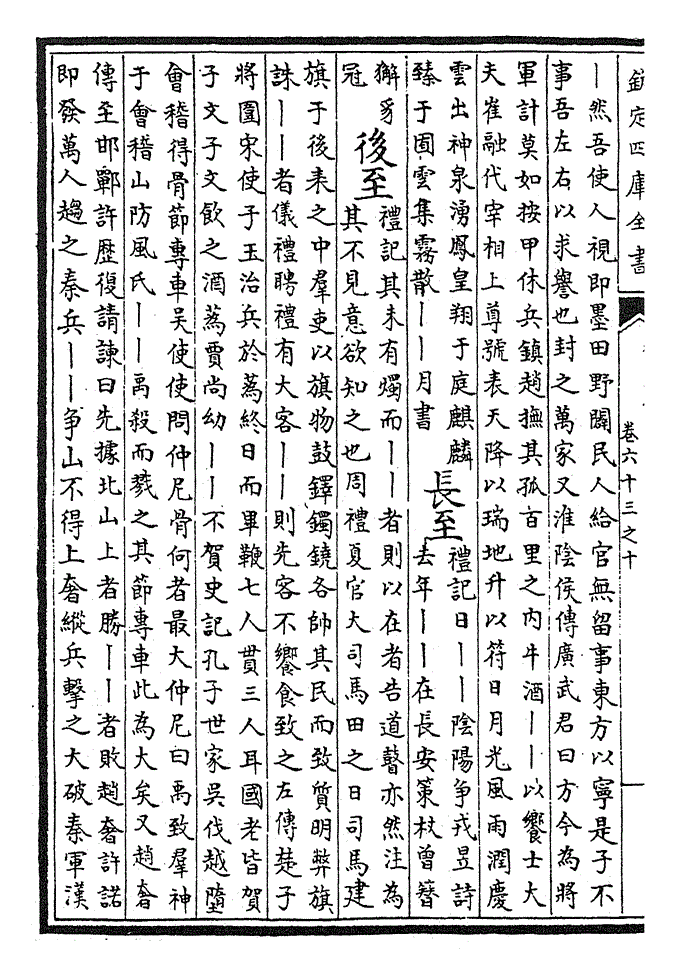 欽定四庫全書
卷六十三之十
｜然吾使人視即墨田野闢民人給官無留事東方以寧是子不
事吾左右以求譽也封之萬家又淮陰侯傳廣武君曰方今為將
軍計莫如按甲休兵鎮趙撫其孤百里之內牛酒｜｜以饗士大
夫崔融代宰相上尊號表天降以瑞地升以符日月光風雨潤慶
雲出神泉湧鳳皇翔于庭麒麟
臻于囿雲集霧散｜｜月書
長至
禮記日｜｜陰陽争戎昱詩
去年｜｜在長安策杖曾簪
獬豸
冠
後至
禮記其未有燭而｜｜者則以在者告道瞽亦然注為
其不見意欲知之也周禮夏官大司馬田之日司馬建
旗于後表之中羣吏以旗物鼓鐸鐲鐃各帥其民而致質明弊旗
誅｜｜者儀禮聘禮有大客｜｜則先客不饗食致之左傳楚子
將圍宋使子玉治兵於蒍終日而畢鞭七人貫三人耳國老皆賀
子文子文飲之酒蒍賈尚幼｜｜不賀史記孔子世家吳伐越墮
會稽得骨節專車吳使使問仲尼骨何者最大仲尼曰禹致羣神
于會稽山防風氏｜｜禹殺而戮之其節專車此為大矣又趙奢
傳至邯鄲許歴復請諫曰先據北山上者勝｜｜者敗趙奢許諾
即發萬人趨之秦兵｜｜争山不得上奢縱兵擊之大破秦軍漢